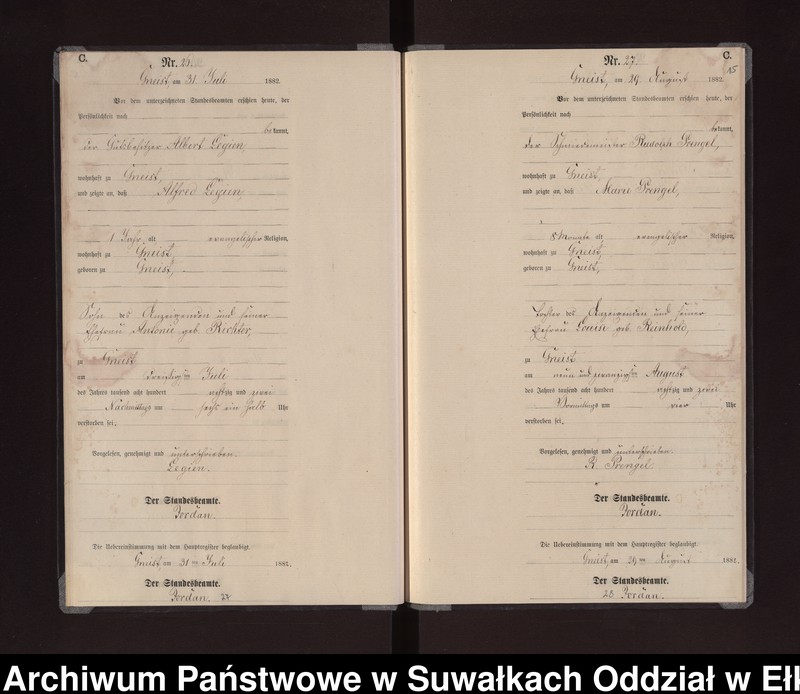 C.
Nr. 26.
Gneist, am 31 Juli 1882.
Vor dem unterzeichneten Standesbeamten erschien heute, der
Persönlichkeit nach
bekannt,
der Gutsbesitzer Albert Legien,
wohnhaft zu Gneist,
und zeigte an, daß Alfred Legien,
1 Jahr, alt evangelischer Religion,
wohnhaft zu Gneist,
geboren zu Gneist,
Sohn des Anzeigenden und seiner
Ehefrau Antonie geb. Richter,
zu Gneist
am dreißigsten Juli
des Jahres tausend acht hundert achtzig und zwei
Nachmittags um sechs ein halb Uhr
verstorben sei.
Vorgelesen, genehmigt und unterschrieben.
Legien.
Der Standesbeamte.
Jordan.
Die Uebereinstimmung mit dem Hauptregister beglaubigt.
Gneist, am 31ten Juli 1882.
Der Standesbeamte.
Jordan.
C.
15
Nr. 27
Gneist, am 29 August 1882.
Vor dem unterzeichneten Standesbeamten erschien heute, der
Persönlichkeit nach
bekannt,
der Schmiedemeister Rudolph Prengel,
wohnhaft zu Gneist,
und zeigte an, daß Marie Prengel,
5 Monate alt evangelischer Religion,
wohnhaft zu Gneist,
geboren zu Gneist,
Tochter des Anzeigenden und seiner
Ehefrau Louise geb Reinhold,
zu Gneist
am neun und zwanzigsten August
des Jahres tausend acht hundert achtzig und zwei
Vormittags um vier Uhr
verstorben sei.
Vorgelesen, genehmigt und unterschrieben.
R Prengel.
Der Standesbeamte.
Jordan.
Die Uebereinstimmung mit dem Hauptregister beglaubigt.
Gneist, am 29ten August 1882.
Der Standesbeamte.
Jordan.
Archiwum Państwowe w Suwałkach Oddział w Ełk